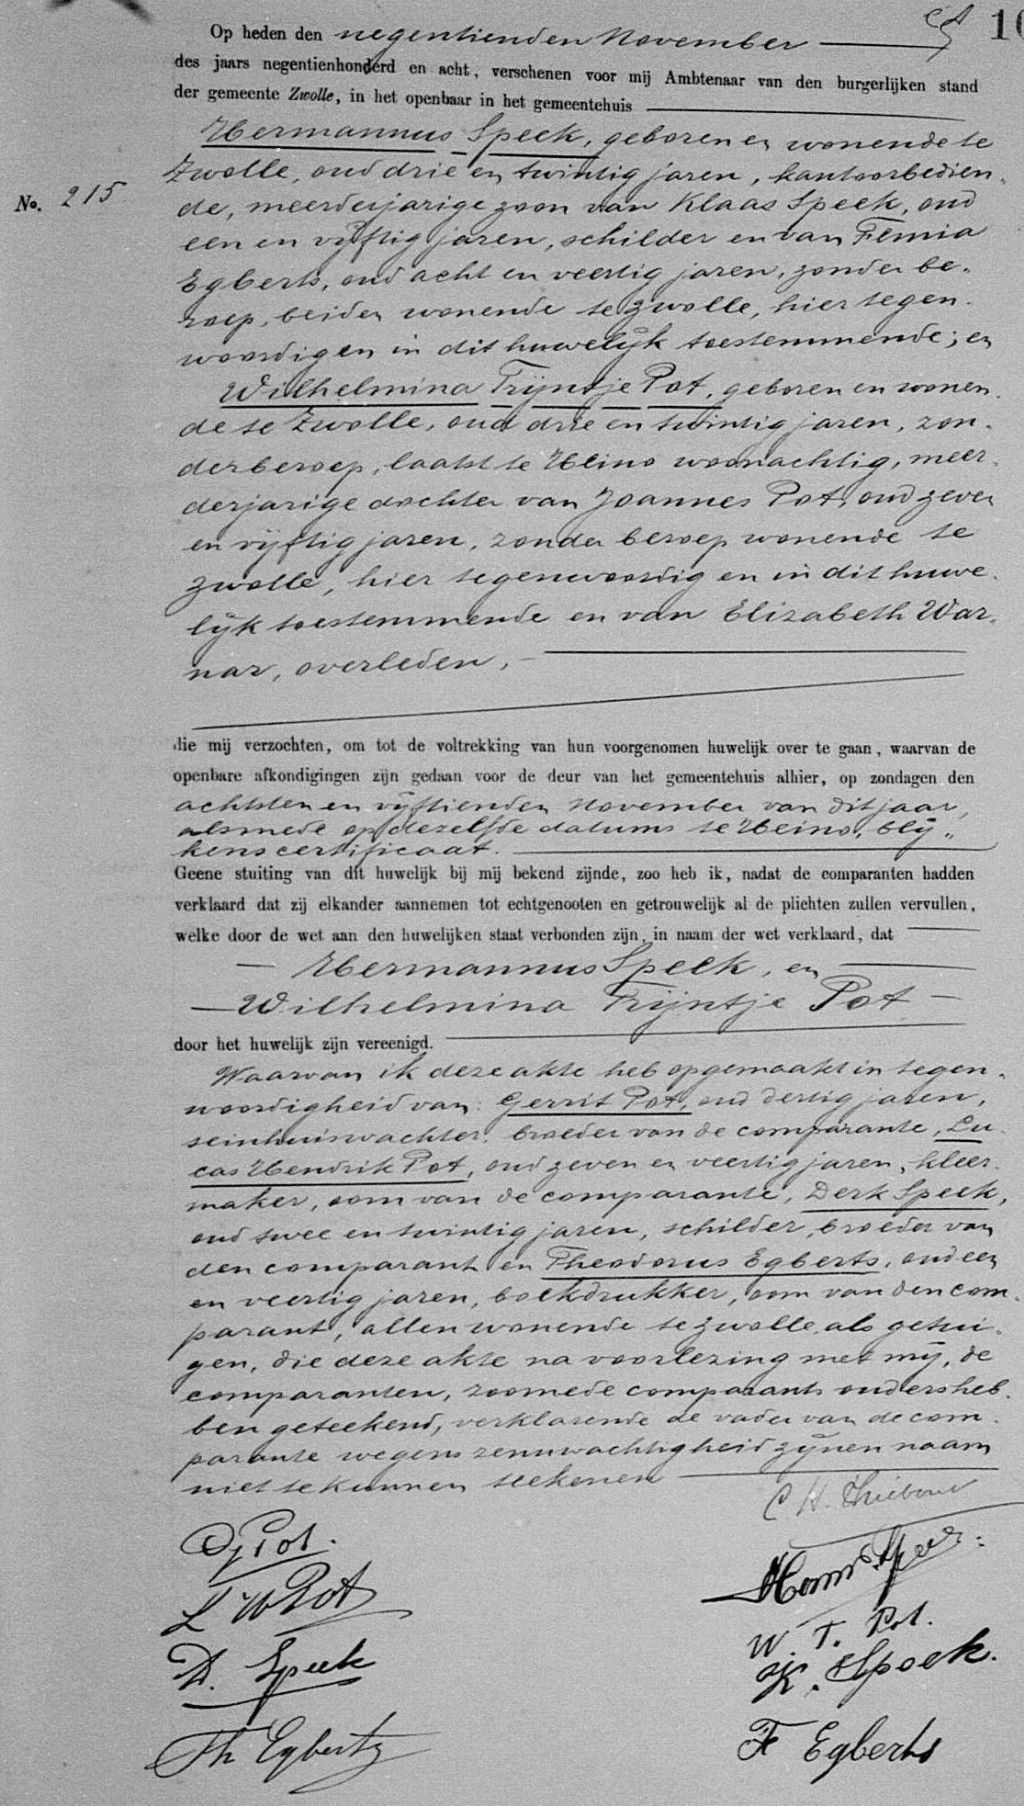 10
Op heden den negentienden November
des jaars negentienhonderd en acht, verschenen voor mij Ambtenaar van den burgerlijken stand
der gemeente Zwolle, in het openbaar in het gemeentehuis
Hermannus Speek, geboren en wonende te
Zwolle, oud drie en twintig jaren, kantoorbedien„
No. 215
de, meerderjarige zoon van Klaas Speek, oud
een en vijftig jaren, schilder en van Femia
Egberts, oud acht en veertig jaren, zonder be„
roep, beiden wonende te Zwolle, hier tegen„
woordig en in dit huwelijk toestemmende; en
Wilhelmina Trijntje Pot, geboren en wonen„
de te Zwolle, oud drie en twintig jaren, zon„
der beroep, laatst te Heino woonachtig, meer„
derjarige dochter van Joannes Pot, oud zeven
en vijftig jaren, zonder beroep wonende te
Zwolle, hier tegenwoordig en in dit huwe„
lijk toestemmende en van Elizabeth War„
nar, overleden,
die mij verzochten, om tot de voltrekking van hun voorgenomen huwelijk over te gaan, waarvan de
openbare afkondigingen zijn gedaan voor de deur van het gemeentehuis alhier, op zondagen den
achtsten en vijftienden November van dit jaar,
alsmede op dezelfde datums te Heino, blij„
kens certificaat.
Geene stuiting van dit huwelijk bij mij bekend zijnde, zoo heb ik, nadat de comparanten hadden
verklaard dat zij elkander aannemen tot echtgenooten en getrouwelijk al de plichten zullen vervullen,
welke door de wet aan den huwelijken staat verbonden zijn, in naam der wet verklaard, dat
Hermannus Speek, en
Wilhelmina Trijntje Pot
door het huwelijk zijn vereenigd.
Waarvan ik deze akte heb opgemaakt in tegen„
woordigheid van: Gerrit Pot, oud dertig jaren,
seinhuiswachter, broeder van de comparante, Lu„
cas Hendrik Pot, oud zeven en veertig jaren, kleer„
maker, oom van de comparante, Derk Speek,
oud twee en twintig jaren, schilder, broeder van
den comparant en Theodorus Egberts, oud een
en veertig jaren, boekdrukker, oom van den com„
parant, allen wonende te Zwolle, als getui„
gen, die deze akte na voorlezing met mij, de
comparanten, zoomede comparants ouders heb„
ben geteekend, verklarende de vader van de com„
parante wegens zenuwachtigheid zijnen naam
niet te kunnen teekenen
C H. Thiebout
G Pot.
Herm. Speek
L H Pot
W. T. Pot.
D. Speek
K. Speek.
Th Egberts
F Egberts